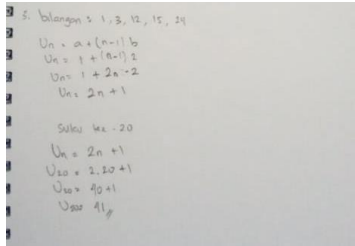 5. bilangan : 1, 3, 12, 15, 24
Un = a + (n-1) b
Un = 1 + (n-1) 2
Un = 1 + 2n - 2
Un = 2n + 1
Suku ke - 20
Un = 2n + 1
U20 = 2.20 + 1
U20 = 40 + 1
U20 = 41